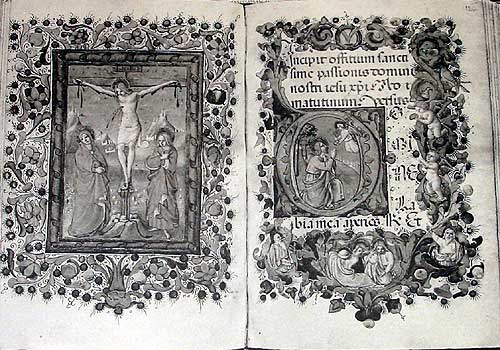 Incipit offitium sancti
sime passionis domini
nostri iesu xpi. Ad
matutinum.
NE
la
bia mea aperies. R. Et